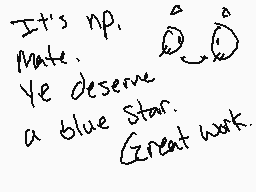 It's np,
mate.
Ye deserve
a blue star.
Great work.